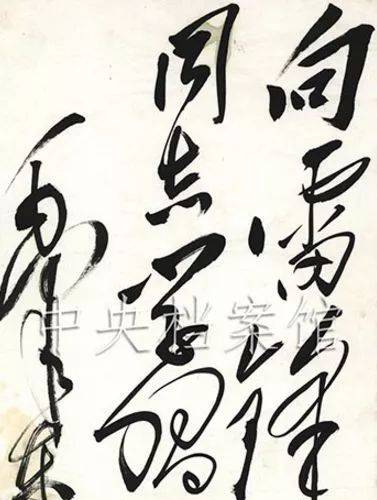 向雷锋
同志学习
毛泽东
中央档案馆